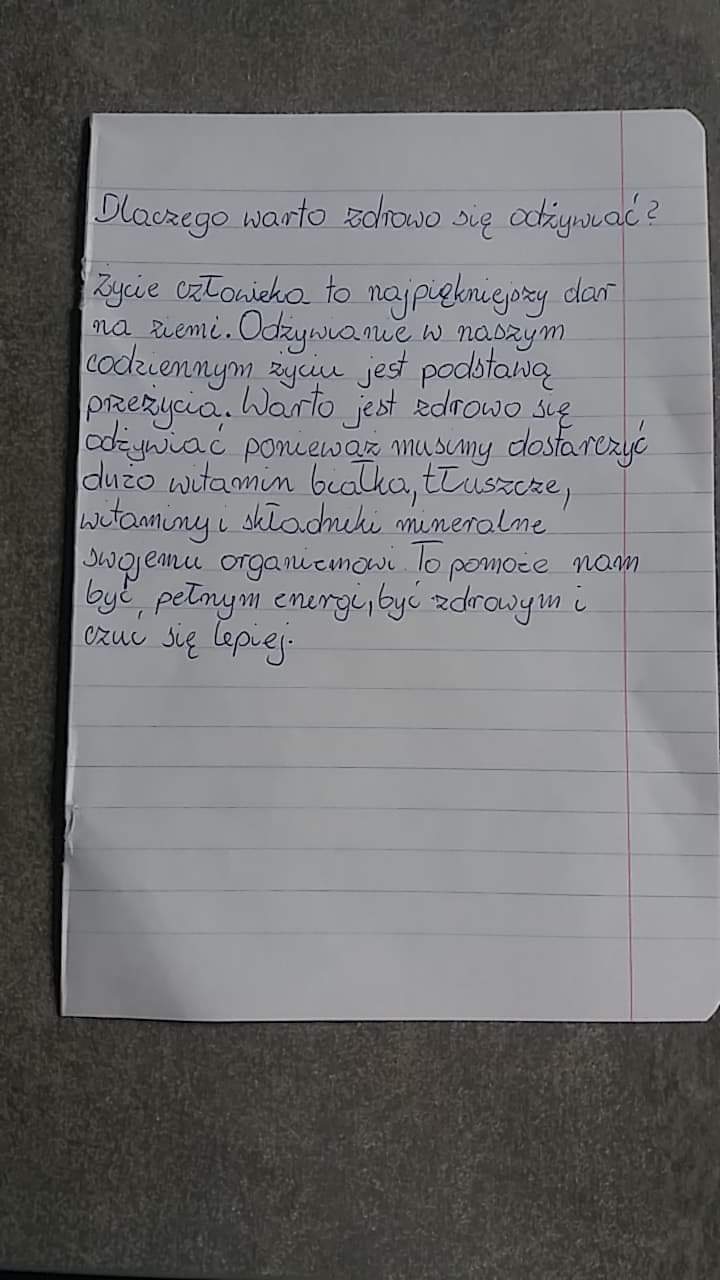 Dlaczego warto zdrowo się odżywiać?
Życie człowieka to najpiękniejszy dar
na ziemi. Odżywianie w naszym
codziennym życiu jest podstawą
przeżycia. Warto jest zdrowo się
odżywiać ponieważ musimy dostarczyć
dużo witamin białka, tłuszcze,
witaminy i składniki mineralne
swojemu organizmowi. To pomoże nam
być pełnym energi, być zdrowym i
czuć się lepiej.